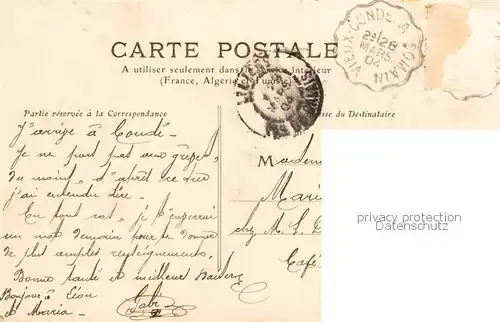 CARTE POSTALE
A utiliser seulement dans le Service intérieur
(France, Algérie et Tunisie)
VIEUX-CONDÉ A SOMAIN
29 28
MARS
04
Partie réservée à la Correspondance
Adresse du Destinataire
J'arrive à Condé.
Je ne part pas aux grèves,
du moins, d'après ce que
j'ai entendu dire.
En tout cas, je t'enverrai
un mot demain pour te donner
de plus amples renseignements.
Bonne santé et meilleur Baisers
Bonjour à Léon
et Maria.
Gabr
Madem
Mari
chez M. L.
Café
privacy protection
Datenschutz